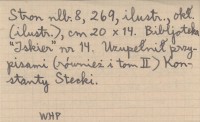 Stron nlb. 8, 269, ilustr., okł.
(ilustr.), cm 20 x 14. Bibljoteka
"Iskier" nr 14. Uzupełnił przy-
pisami (również i tom II) Kon-
stanty Stecki.
WHP